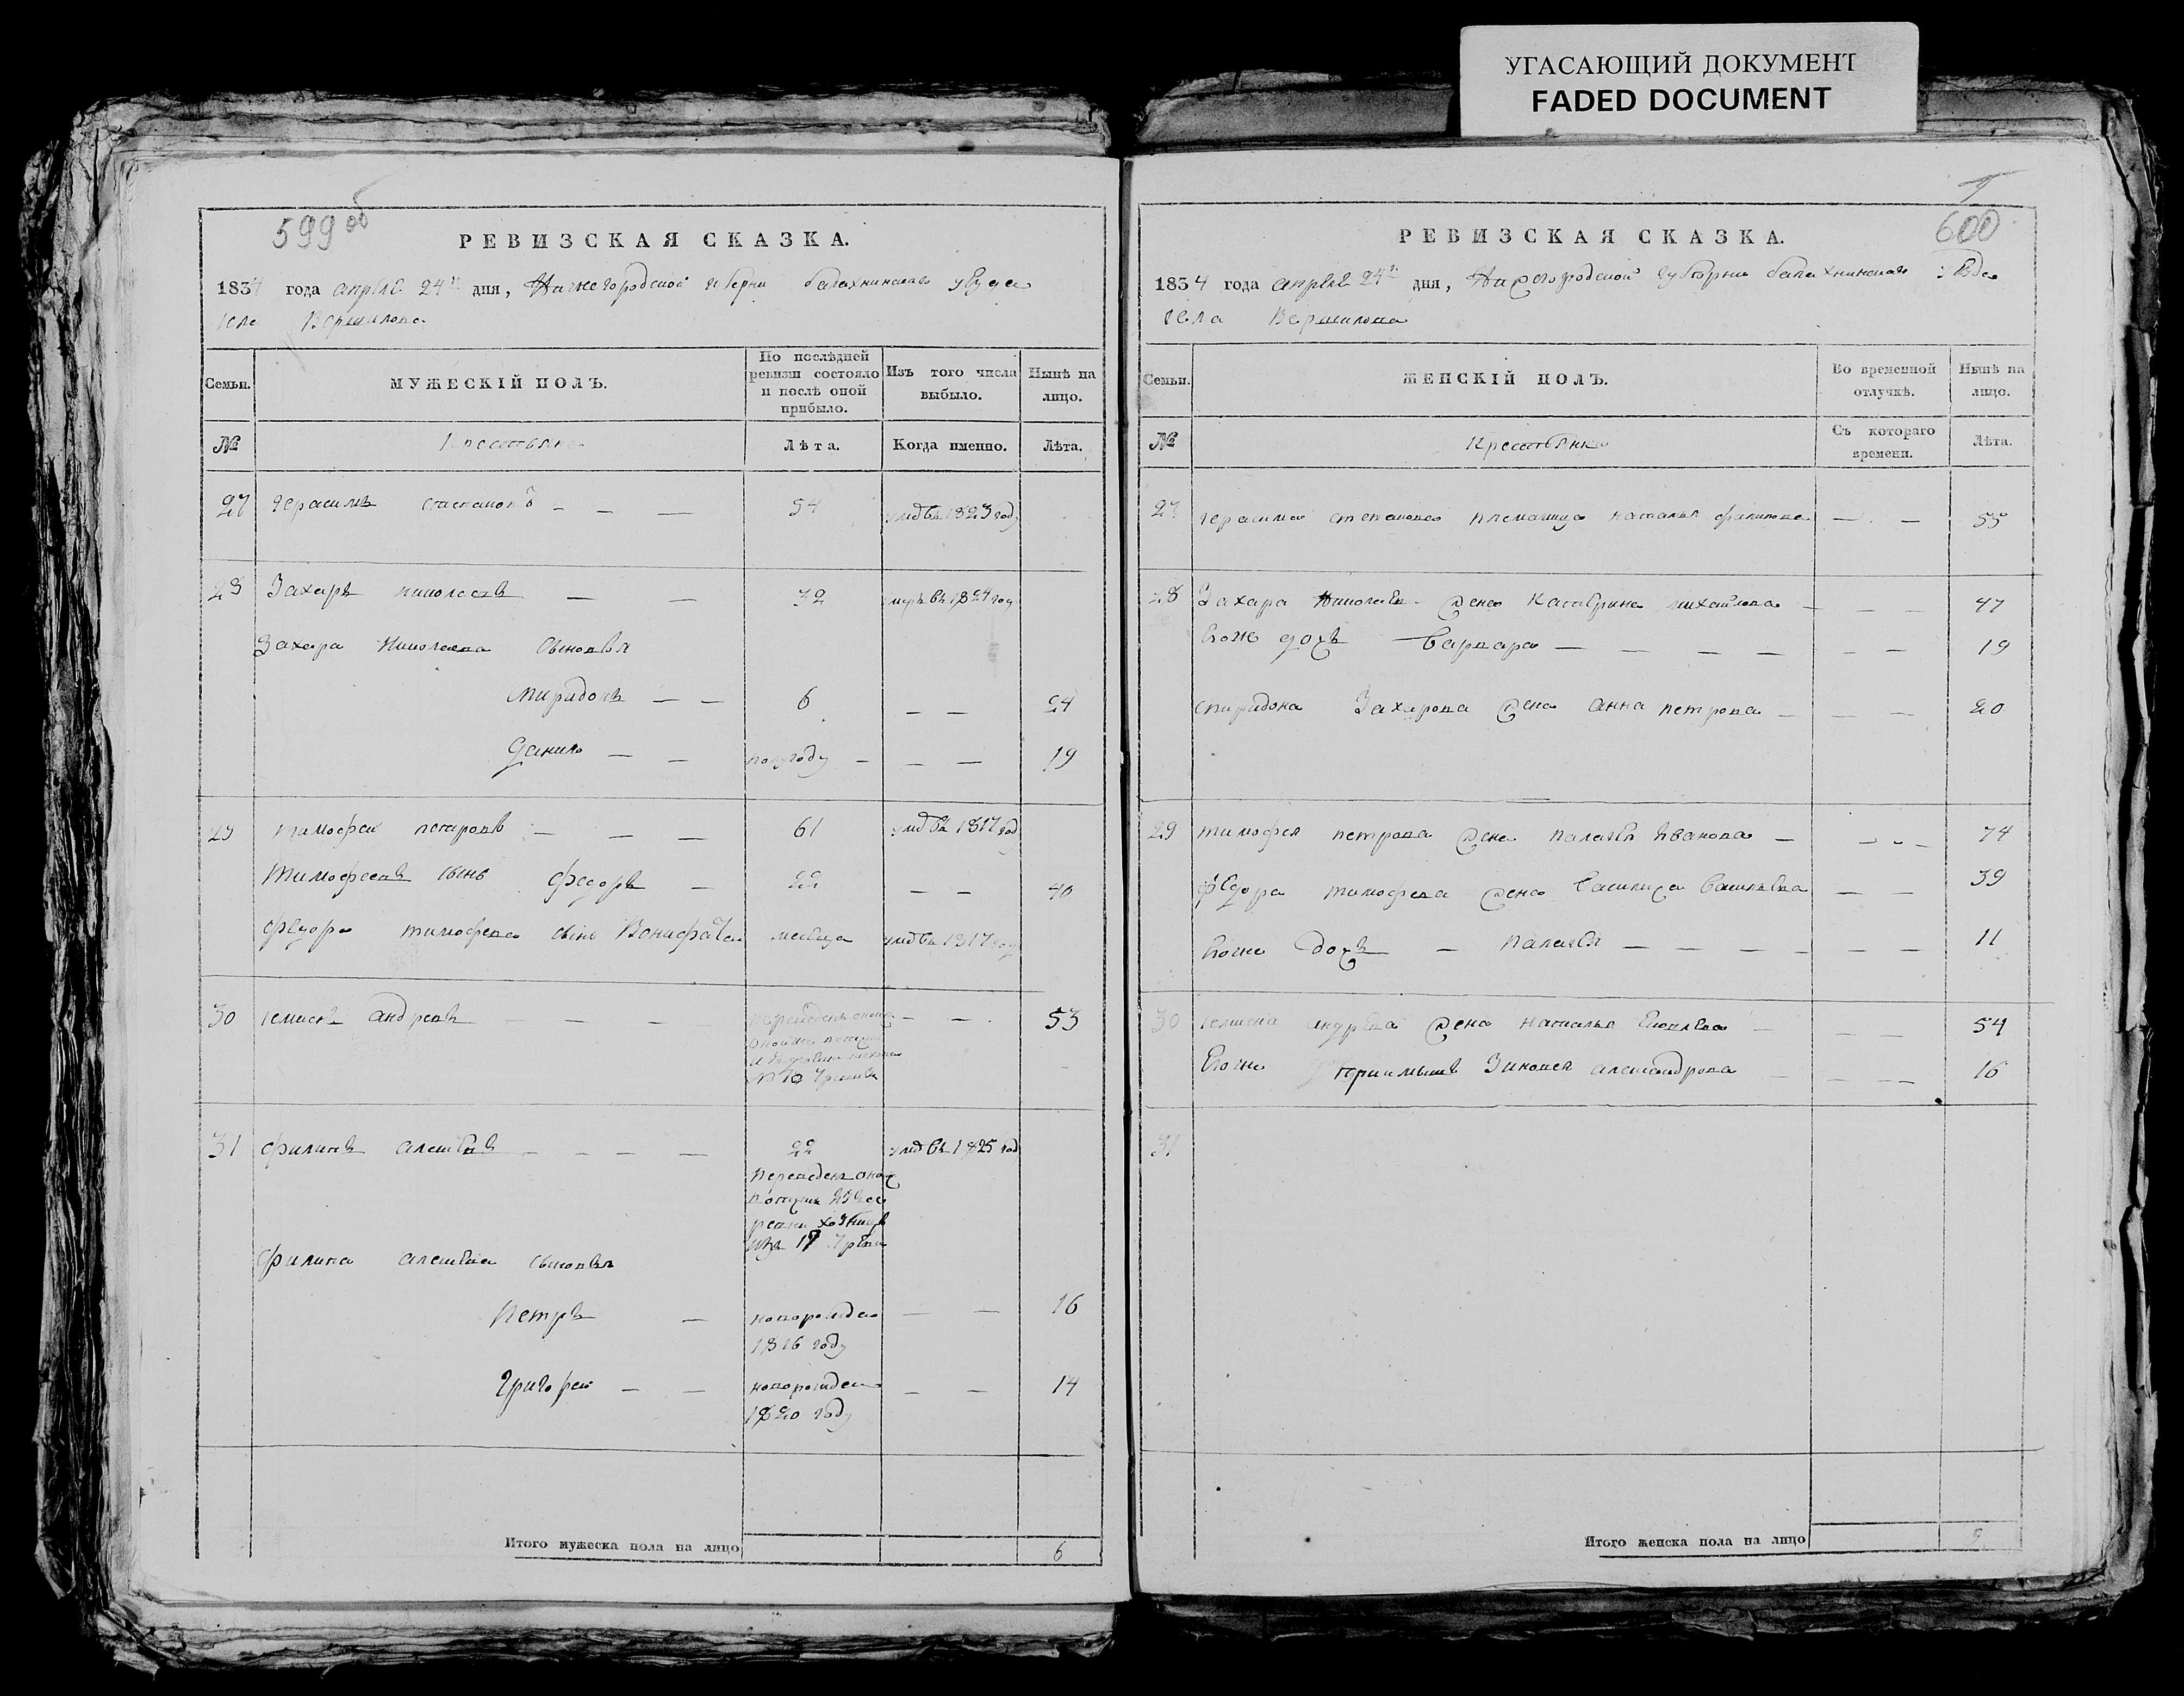 УГАСАЮЩИЙ ДОКУМЕНТ
FADED DOCUMENT
599 об
РЕВИЗСКАЯ СКАЗКА.
1834 года апреля 24 дня, Нижегородской губерни балахнинскаго уезда
села Вершилова
Семьи. МУЖЕСКІЙ ПОЛЪ. По послѣдней ревизіи состояло и послѣ оной прибыло. Изъ того числа выбыло. Нынѣ на лицо.
№ Крестьяне Лѣта. Когда именно. Лѣта.
27 Герасимъ степановъ — — — 54 въ 1823 году
28 Захаръ николаевъ — — 32 въ 1824 году
Захара Николаева сыновья
— — 6 — — 24
Данило — — полугоду — — — 19
29 тимофей петровъ — — — 61 въ 1817 году
Тимофеевъ сынъ федоръ — 22 — — 40
федора тимофеева сынъ Вонифатей месяца въ 1817 году
30 андреевъ — — — — — 53
31 филипъ — — — — 22 въ 1825 году
изъ 19
филипа сыновья
Петръ — новорожден — — 16
1816 году
Григорей — — новорожден — — 14
1820 году
Итого мужеска пола на лицо 6
600
РЕВИЗСКАЯ СКАЗКА.
1834 года апреля 24 дня, Нижегородской губернии балахнинскаго уезда
села Вершилова
Семьи. ЖЕНСКІЙ ПОЛЪ. Во временной отлучкѣ. Нынѣ на лицо.
№ Крестьянки Съ котораго времени. Лѣта.
27 герасима степанова племянница наталья филипова — — 55
28 Захара Николаева жена Катерина михайлова — — — 47
Егож дочь варвара — — — — — — 19
спиридона Захарова жена анна петрова — — — 20
29 тимофея петрова жена палагея Иванова — — — 74
федора тимофеева жена василиса васильева — — 39
Егоже дочь — палагея — — — — — — 11
30 андреева жена наталья — — — 54
Егоже приимышъ Зиновея александрова — — 16
31
Итого женска пола на лицо